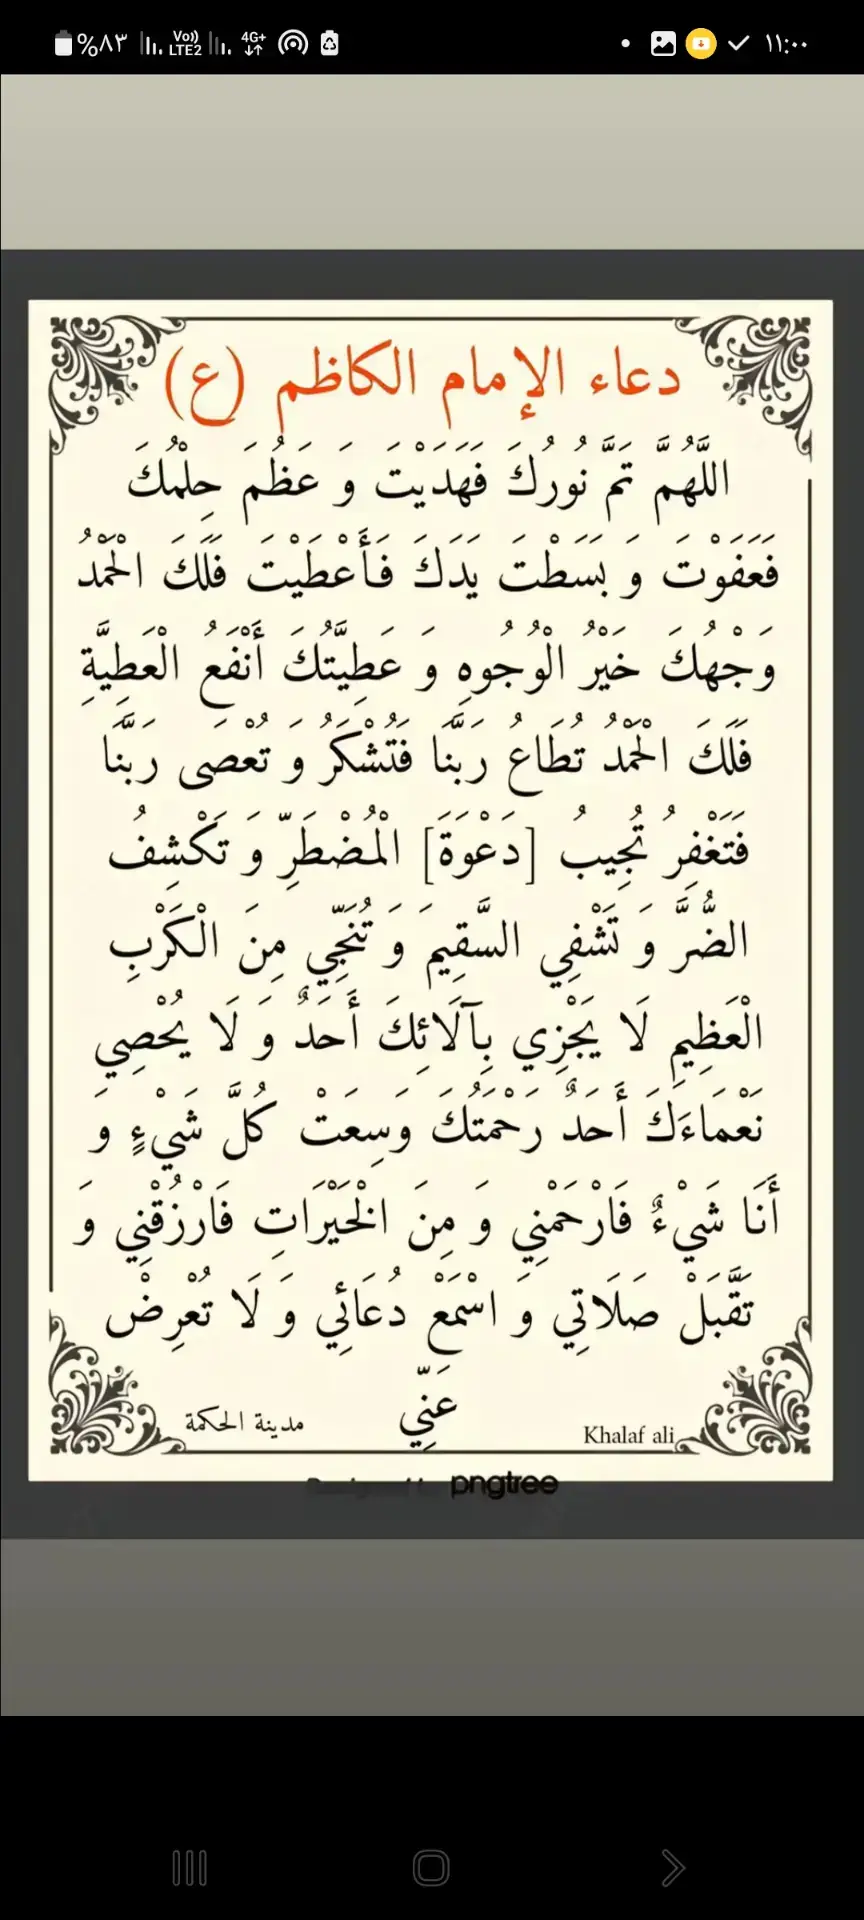 %٨٣ Vo)) LTE2 4G+ ١١:٠٠
دعاء الإمام الكاظم (ع)
اللَّهُمَّ تَمَّ نُورُكَ فَهَدَيْتَ وَ عَظُمَ حِلْمُكَ
فَعَفَوْتَ وَ بَسَطْتَ يَدَكَ فَأَعْطَيْتَ فَلَكَ الْحَمْدُ
وَجْهُكَ خَيْرُ الْوُجُوهِ وَ عَطِيَّتُكَ أَنْفَعُ الْعَطِيَّةِ
فَلَكَ الْحَمْدُ تُطَاعُ رَبَّنَا فَتُشْكَرُ وَ تُعْصَى رَبَّنَا
فَتَغْفِرُ تُجِيبُ [دَعْوَةَ] الْمُضْطَرِّ وَ تَكْشِفُ
الضُّرَّ وَ تَشْفِي السَّقِيمَ وَ تُنَجِّي مِنَ الْكَرْبِ
الْعَظِيمِ لَا يَجْزِي بِآلَائِكَ أَحَدٌ وَ لَا يُحْصِي
نَعْمَاءَكَ أَحَدٌ رَحْمَتُكَ وَسِعَتْ كُلَّ شَيْءٍ وَ
أَنَا شَيْءٌ فَارْحَمْنِي وَ مِنَ الْخَيْرَاتِ فَارْزُقْنِي وَ
تَقَّبَلْ صَلَاتِي وَ اسْمَعْ دُعَائِي وَ لَا تُعْرِضْ
عَنِّي
Khalaf ali
مدينة الحكمة
pngtree